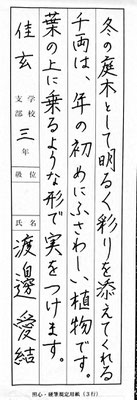 冬の庭木として明るく彩りを添えてくれる
千両は、年の初めにふさわしい植物です。
葉の上に乗るような形で実をつけます。
学校
支部
佳玄
三年
級位
氏名
渡邉愛結
照心・硬筆規定用紙(3行)